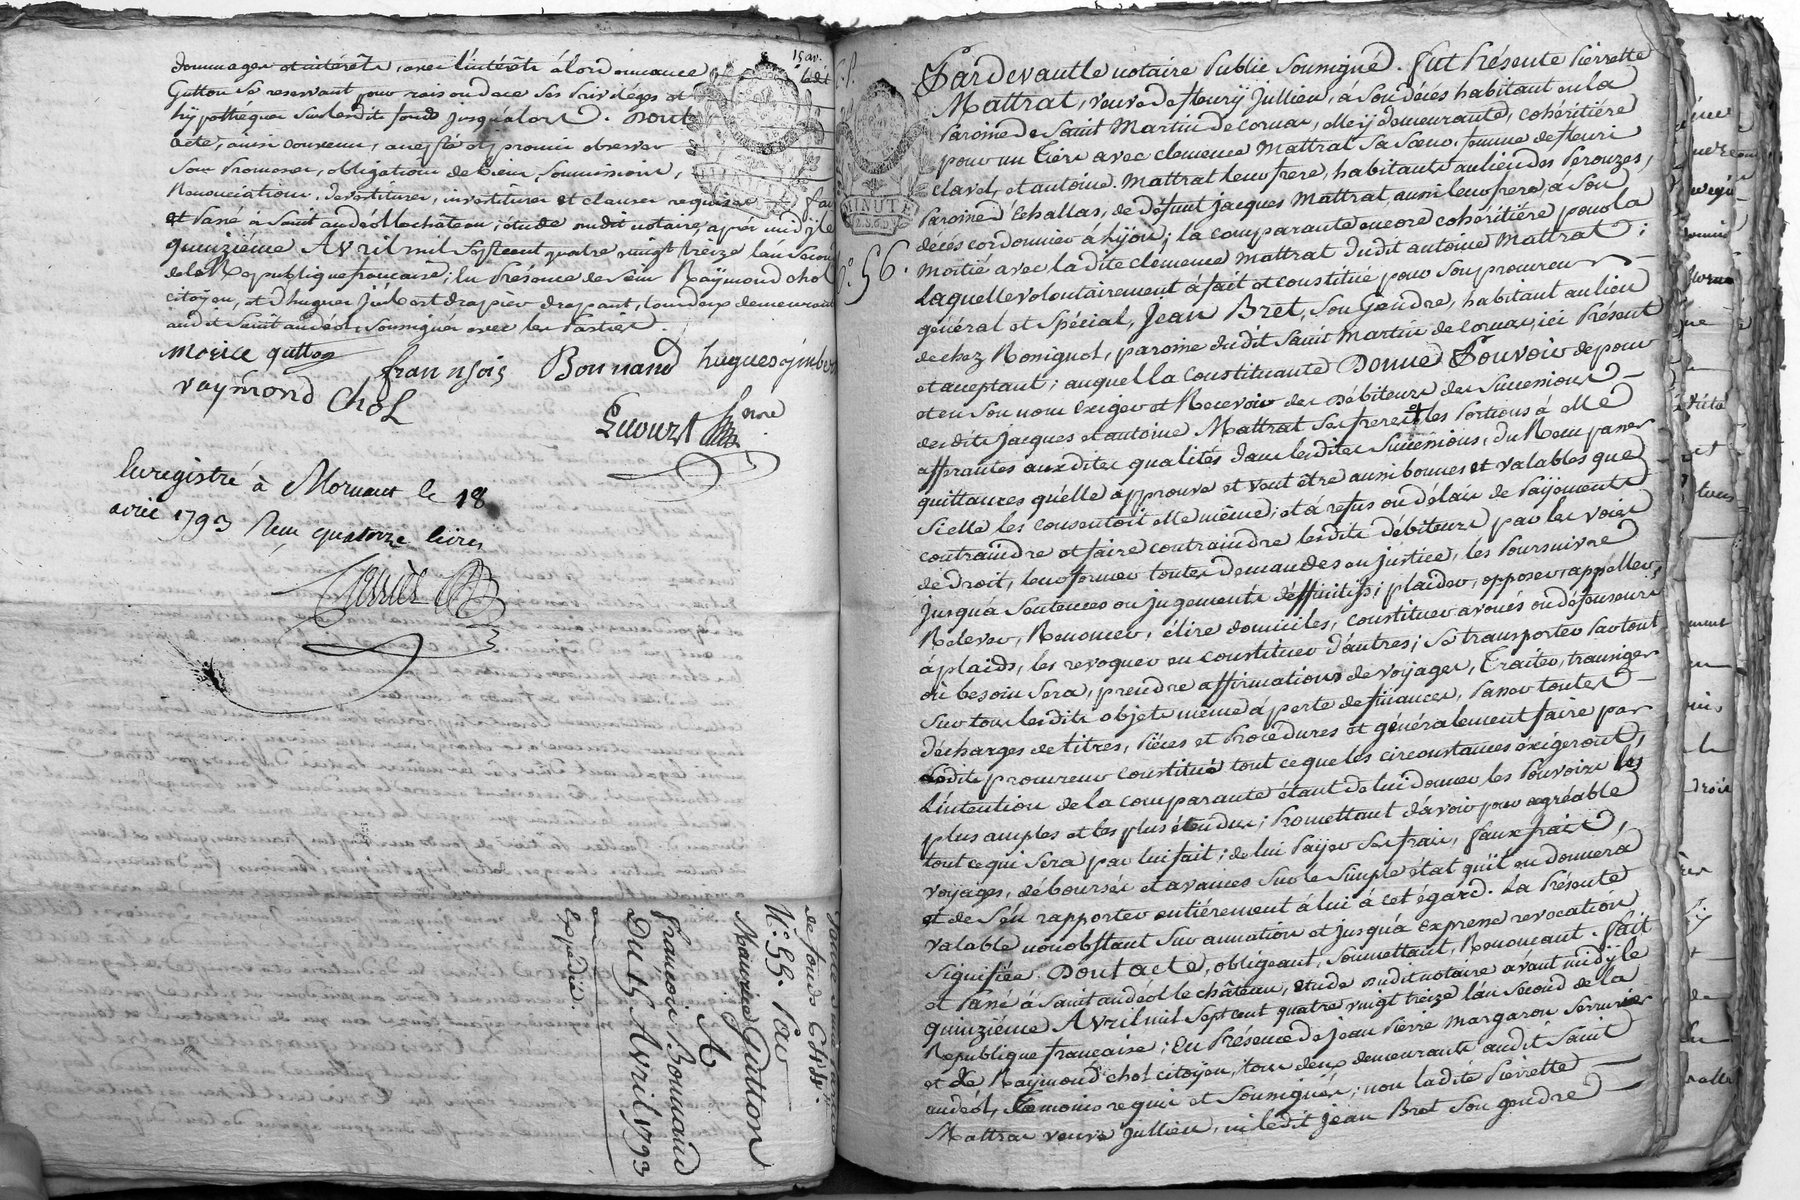 15 av.
dommages et intérêts, avec l'intérêts à lordonnance ledit
Gutton se reservant pour raison dece ses Privilèges et
hypothéques surledit fonds jusqu'alors. Dont
acte, ainsi convenu, accepté et promis observer
sous Promesses, obligations de biens, Soumissions,
Renonciations, devestitures, investitures et clauses requises. fait
et Passé à Saint andéol lechâteau, étude dudit notaire, après midy, le
quinzième Avril mil sept cent quatre vingt treize l'an second
dela Republique francaise; En Présence de sieur Raymond chol
citoyen, et d'hugues jimbert drapier drapant, tous deux demeurants
audit Saint andéol, Soussignés avec les Parties.
morice gutton
frannsois Bonnand hugues gimbert
raymond Chol
Enregistré à Mornant le 18
avril 1793 Reçu quatorze livres
de fonds
N.º 55. Par
Maurice Gutton
A
Francois Bonnand
Du 15 Avril 1793
Expédié.
MINUTE
N.º 56.
Pardevant le notaire Public Soussigné. fut Présente Pierrette
Mattrat, veuve de fleury Jullien, à Son décès habitant en la
Paroisse de Saint Martin de Cornas, elle y demeurante, cohéritière
pour un tiers avec clemence Mattrat Sa Sœur, femme de fleuri
clavel, et antoine Mattrat leur frere, habitants au lieu des Perouzes,
Paroisse d'Echallas, de défunt jacques Mattrat, aussi leur frere à Son
décès cordonnier à Lyon; la comparante encore cohéritière pour la
moitié avec la dite clémence mattrat dudit antoine Mattrat;
Laquelle volontairement à fait et constitué pour Son procureur
général et Spécial, Jean Bret, Son Gendre, habitant au lieu
de chez Rossignol, paroisse dudit Saint Martin de Cornas, ici Présent
et acceptant; auquel la constituante Donne Pouvoir de pour
et en Son nom Exiger et Recevoir des Débiteurs des Successions
desdits jacques et antoine Mattrat Ses freres les Portions à elle
afferantes auxdites qualités dans lesdites Successions, du Reçu passer
quittances qu'elle approuve et veut être aussi bonnes et valables que
Si elle les consentoit elle même; et à refus ou délais de Payements
contraindre et faire contraindre lesdits débiteurs par les voies
de droit, leur former toutes Demandes en justice, les Poursuivre
jusqu'à Sentences ou jugements déffinitifs; plaider, opposer, appeller,
Relever, Renoncer, élire domiciles, constituer avoués ou défenseurs
à plaids, les revoquer en constituer d'autres; Se transporter Partout
où besoin Sera, prendre affirmations de voyages, Traiter, transiger
Sur tous lesdits objets même à perte de finances, Passer toutes
décharges de titres, Pièces et Procédures et généralement faire par
ledit procureur constitué tout ce que les circonstances éxigeront,
L'intention de la comparante étant de lui donner les Pouvoirs les
plus amples et les plus étendus; Promettant d'avoir pour agréable
tout ce qui Sera par lui fait; de lui Payer Ses frais, faux frais,
voyages, déboursés et avances Sur le Simple état qu'il en donnera
et de S'en rapporter entièrement à lui à cet égard. La Présente
valable nonobstant Surannation et jusqu'à expresse revocation
Signifiée. Dont acte, obligeant, Soumettant, Renoncant. fait
et Passé à Saint andéol le château, étude dudit notaire avant midy le
quinzième Avril mil Sept cent quatre vingt treize l'an Second de la
Republique française; En Présence de jean Pierre Margaron Serrurier
et de Raymond chol citoyen, tous deux demeurants audit Saint
andéol, Témoins requis et Soussignés; non ladite Pierrette
Mattrat veuve Jullien, ni ledit Jean Bret Son gendre